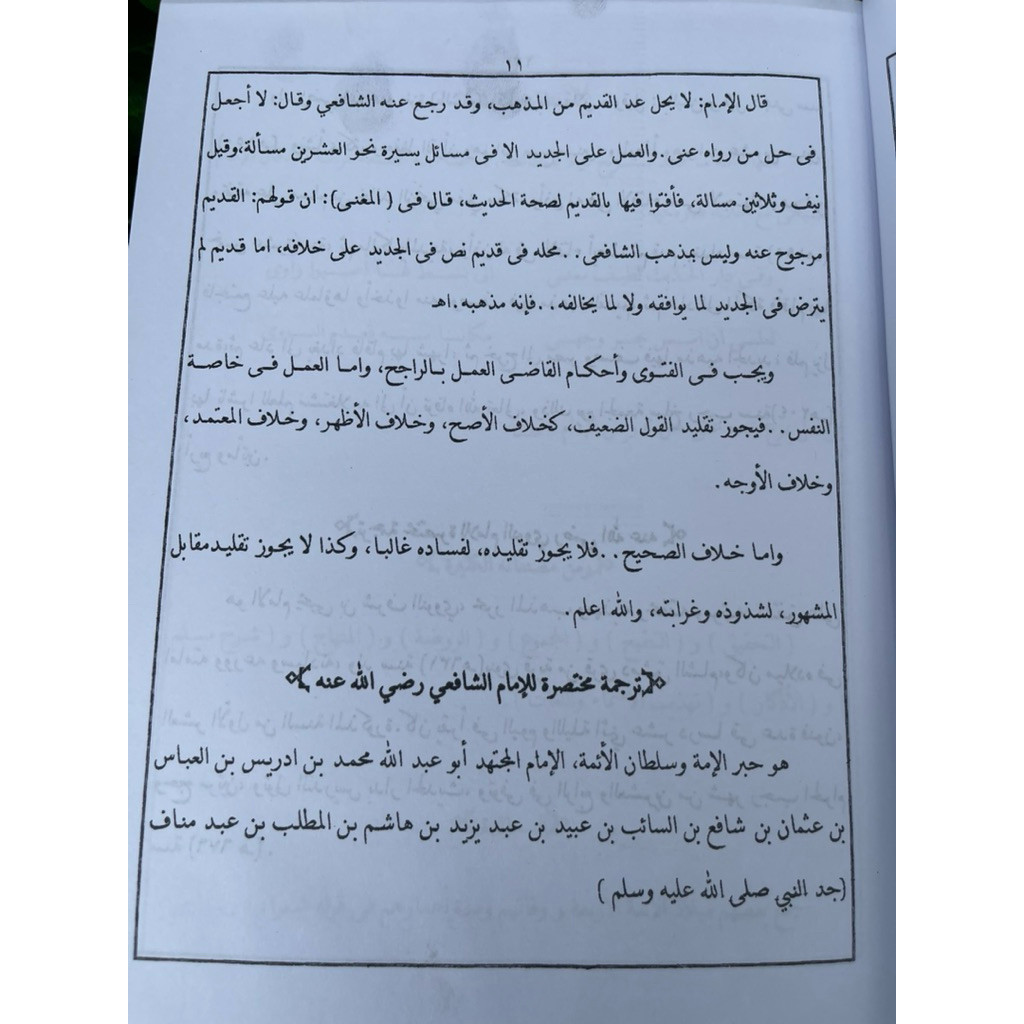 ١١
قال الإمام: لا يحل عد القديم من المذهب، وقد رجع عنه الشافعي وقال: لا أجعل
فى حل من رواه عنى. والعمل على الجديد الا فى مسائل يسيرة نحو العشرين مسألة،وقيل
نيف وثلاثين مسالة، فأفتوا فيها بالقديم لصحة الحديث، قال فى ( المغنى): ان قولهم: القديم
مرجوح عنه وليس بمذهب الشافعى.. محله فى قديم نص فى الجديد على خلافه، اما قديم لم
يترض فى الجديد لما يوافقه ولا لما يخالفه.. فإنه مذهبه.اهـ
ويجب فى الفتوى وأحكام القاضى العمل بالراجح، واما العمل فى خاصة
النفس.. فيجوز تقليد القول الضعيف، كخلاف الأصح، وخلاف الأظهر، وخلاف المعتمد،
وخلاف الأوجه.
واما خلاف الصحيح.. فلا يجوز تقليده، لفساده غالبا، وكذا لا يجوز تقليد مقابل
المشهور، لشذوذه وغرابته، والله اعلم.
ترجمة مختصرة للإمام الشافعي رضي الله عنه
هو حبر الإمة وسلطان الأئمة، الإمام المجتهد أبو عبد الله محمد بن ادريس بن العباس
بن عثمان بن شافع بن السائب بن عبيد بن عبد يزيد بن هاشم بن المطلب بن عبد مناف
(جد النبي صلى الله عليه وسلم )